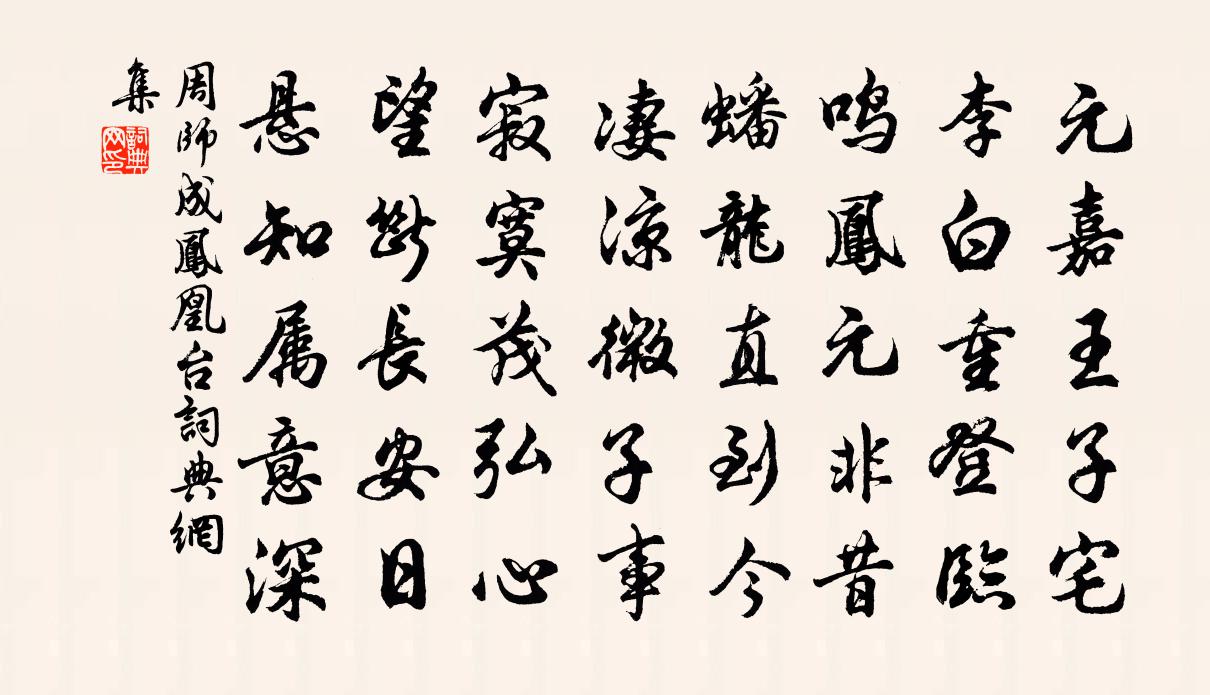 元嘉王子宅
李白重登臨
鸣鳳元非昔
蟠龍直到今
凄涼微子事
寂寞茂弘心
望斷長安日
悬知属意深
周師成鳳凰台詞典網
集
詞典网印